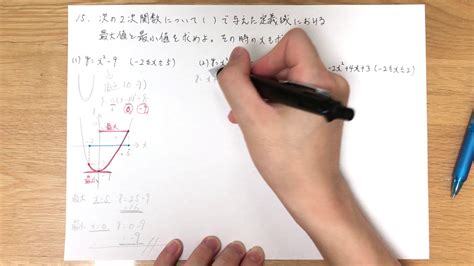 15. 次の2次関数について( )で与えた定義域における
最大値と最小値を求めよ。その時のxも
(1) y=x²-9 (-2≦x≦5)
(2) y=x²
-2x²+4x+3 (-2≦x≦2)
最大
x
5
-9
最大 x=5 y=25-9
=16
最小 x=0 y=0-9
=-9